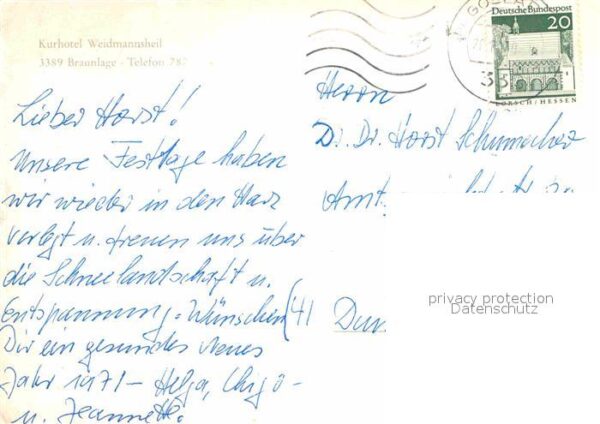 Kurhotel Weidmannsheil
3389 Braunlage · Telefon 787
Lieber Horst!
Unsere Festtage haben
wir wieder in den Harz
verlegt u. freuen uns über
die Schneelandschaft u.
Entspannung. Wünschen
Dir ein gesundes Neues
Jahr 1971 – Helga,
u. Jeannette.
GOSLAR
Deutsche Bundespost
20
LORSCH/HESSEN
Herrn
Dr. Dr. Horst Schumacher
(41
privacy protection
Datenschutz